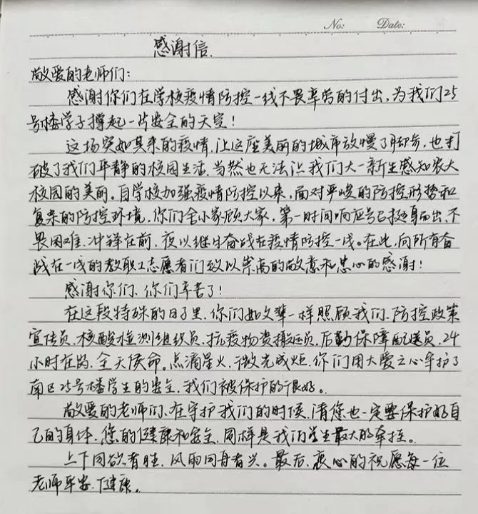 No: Date:
感谢信.
敬爱的老师们:
感谢你们在学校疫情防控一线不畏辛劳的付出,为我们25
号楼学子撑起一片安全的天空!
这场突如其来的疫情,让这座美丽的城市放慢了脚步,也打
破了我们平静的校园生活,当然也无法让我们大一新生感知农大
校园的美丽。自学校加强疫情防控以来,面对严峻的防控形势和
复杂的防控环境,你们舍小家顾大家,第一时间响应号召挺身而出,不
畏困难,冲锋在前,夜以继日奋战在疫情防控一线。在此,向所有奋
战在一线的教职工志愿者们致以崇高的敬意和忠心的感谢!
感谢你们,你们辛苦了!
在这段特殊的日子里,你们如父辈一样照顾我们,防控政策
宣传员,核酸检测组织员,抗疫物资搬运员,后勤保障配送员,24
小时在岗,全天候命。点滴星火,微光成炬,你们用大爱之心守护了
南区25号楼学生的安全,我们被保护的很好。
敬爱的老师们,在守护我们的时候,请您也一定要保护好自
己的身体,您的健康和安全,同样是我们学生最大的牵挂。
上下同欲者胜,风雨同舟者兴。最后,衷心的祝愿每一位
老师平安,健康。